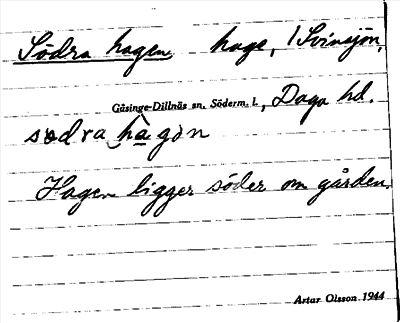 Södra hagen hage, 1 Svinsjön,
Gåsinge-Dillnäs sn. Söderm. l., Daga hd.
sødra hagøn
Hagen ligger söder om gården.
Artur Olsson 1944